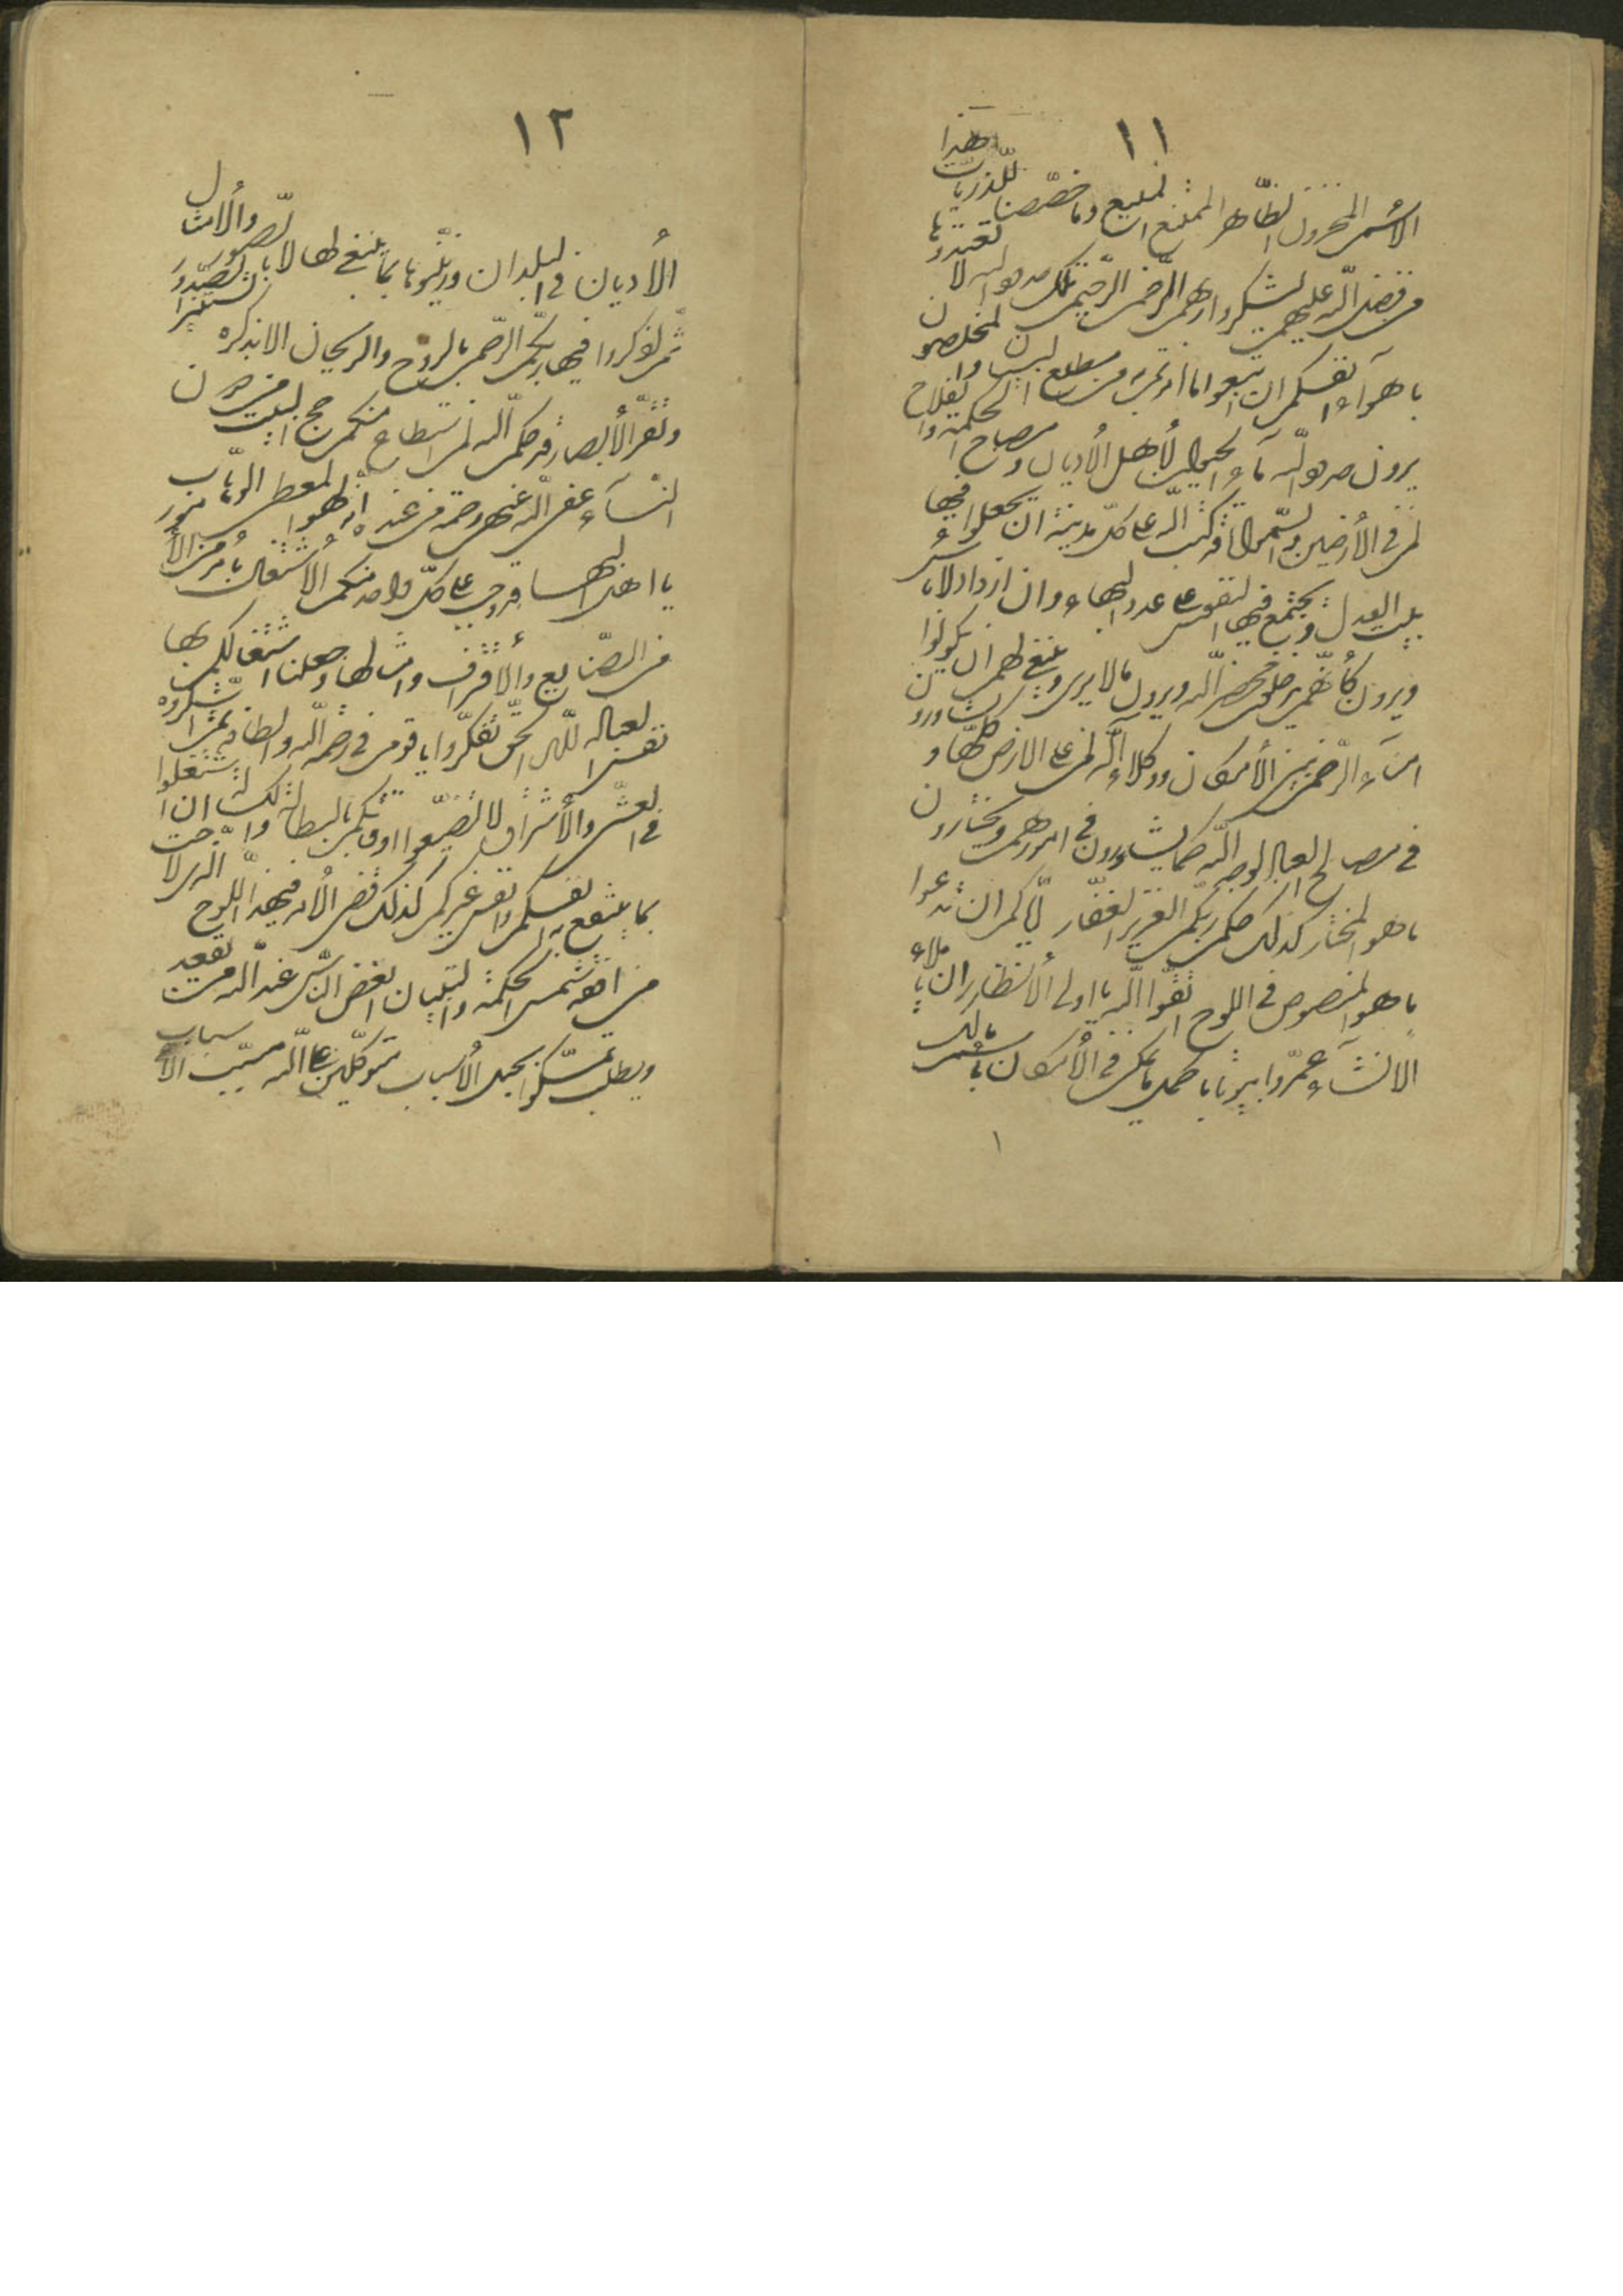 ١١
الاسم المخزون الظّاهر الممتنع المنيع وما خصّصنا للذّريّات هذا
من فضل الله عليهم ليشكروا ربّهم الرّحمن الرّحيم تلك حدود الله لا تعتدوها
باهوآء انفسكم ان اتّبعوا ما امرتم به من مطلع البيان والمخلصون
يرون حدود الله مآء الحيوان لأهل الأديان ومصباح الحكمة والفلاح
لمن في الأرضين والسّموات قد كتب الله على كلّ مدينة ان يجعلوا فيها
بيت العدل ويجتمع فيها النّفوس على عدد البهاء وان ازداد لا بأس
ويرون كأنّهم يدخلون محضر الله ويرون ما لا يرى وينبغي لهم ان يكونوا
امنآء الرّحمن بين الأمكان ووكلاء الله لمن على الارض كلّها ويشاورون
في مصالح العباد لوجه الله كما يشاورون في امورهم ويختارون
ما هو المختار كذلك حكم ربّكم العزيز الغفّار ايّاكم ان تدعوا
ما هو المنصوص في اللوح اتّقوا الله يا اولى الأنظار ان يا ملاء
الانشآء عمّروا بيوتا باكمل ما يمكن في الأمكان باسم مالك
١٢
الأديان في البلدان وزيّنوها بما ينبغي لها لا بالصّور والأمثال
ثمّ اذكروا فيها ربّكم الرّحمن بالروح والريحان الا بذكره تستنير الصّدور
وتقرّ الأبصار قد حكم الله لمن استطاع منكم حج البيت من دون
النّسآء عفى الله عنهن رحمة من عنده انّه لهو المعطى الوهّاب
يا اهل البهاء قد وجب على كلّ واحد منكم الأشتغال بأمر من الأمور
من الصّنايع والأقتراف وامثالها وجعلنا اشتغالكم بها
نفس العباده للّه الحقّ تفكّروا يا قوم في رحمة الله والطافه ثمّ اشكروه
في العشّى والأشراق لا تضيّعوا اوقاتكم بالبطالة والكسالة ان اشتغلوا
بما ينتفع به انفسكم وانفس غيركم كذلك قضى الأمر في هذا اللوح الّذى لاحت
من افقه شمس الحكمة والتبيان ابغض النّاس عند الله من يقعد
ويطلب تمسّكوا بحبل الأسباب متوكّلين على الله مسبّب الأسباب